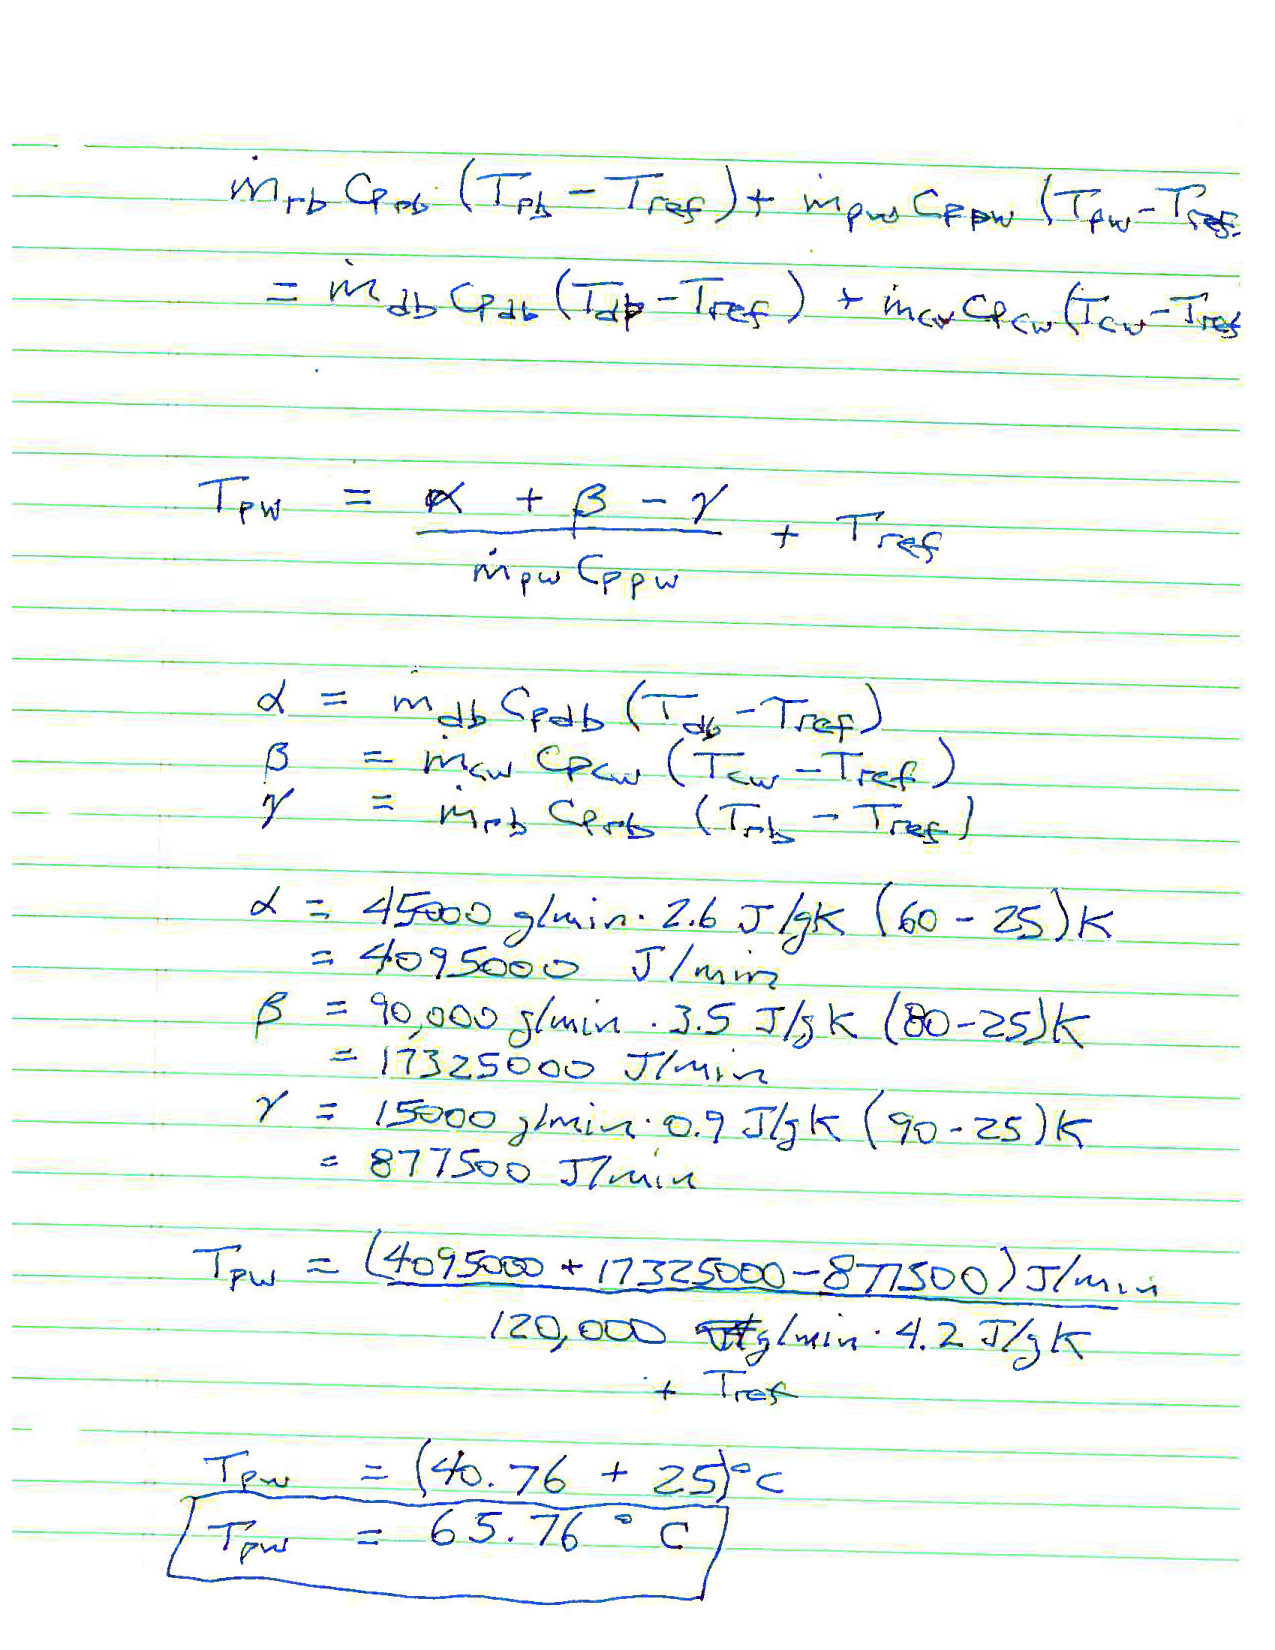 ṁrb Cprb (Trb - Tref) + ṁpw Cppw (Tpw - Tref
= ṁdb Cpdb (Tdb - Tref) + ṁcw Cpcw (Tcw - Tref
Tpw = α + β - γ / ṁpw Cppw + Tref
α = ṁdb Cpdb (Tdb - Tref)
β = ṁcw Cpcw (Tcw - Tref)
γ = ṁrb Cprb (Trb - Tref)
α = 45000 g/min · 2.6 J/gK (60 - 25)K
= 4095000 J/min
β = 90,000 g/min · 3.5 J/gK (80-25)K
= 17325000 J/min
γ = 15000 g/min · 0.9 J/gK (90-25)K
= 877500 J/min
Tpw = (4095000 + 17325000 - 877500) J/min
120,000 g/min · 4.2 J/gK
+ Tref
Tpw = (40.76 + 25)°C
Tpw = 65.76 °C